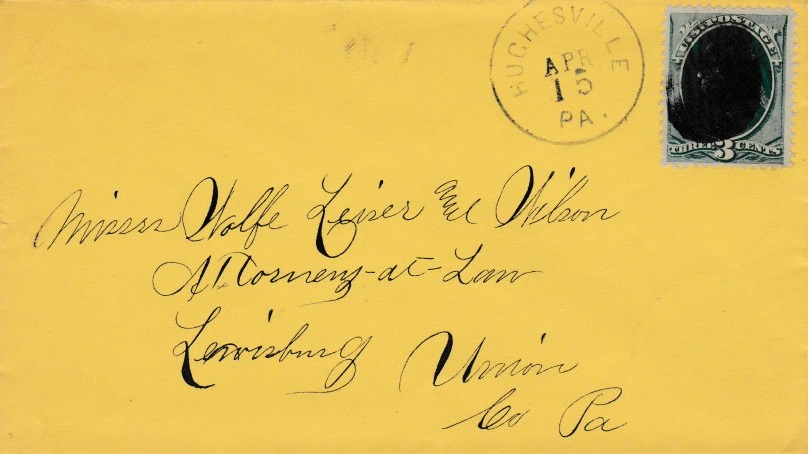 HUGHESVILLE
APR
15
PA.
U.S. POSTAGE
THREE 3 CENTS
Missrs Wolfe Leiser and Wilson
Attorneys-at-Law
Lewisburg Union
Co Pa